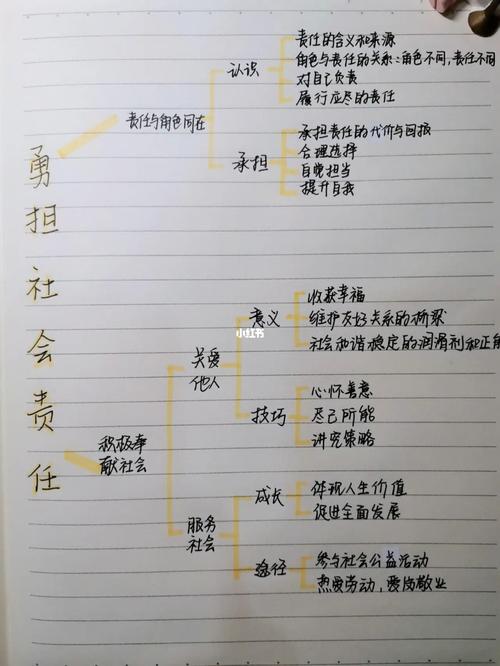 勇担社会责任
责任与角色同在
认识
责任的含义和来源
角色与责任的关系：角色不同，责任不同
对自己负责
履行应尽的责任
承担
承担责任的代价与回报
合理选择
自觉担当
提升自我
积极奉
献社会
关爱
他人
意义
收获幸福
维护友好关系的桥梁
社会和谐稳定的润滑剂和正
技巧
心怀善意
尽己所能
讲究策略
服务
社会
成长
体现人生价值
促进全面发展
途径
参与社会公益活动
热爱劳动，爱岗敬业
小红书